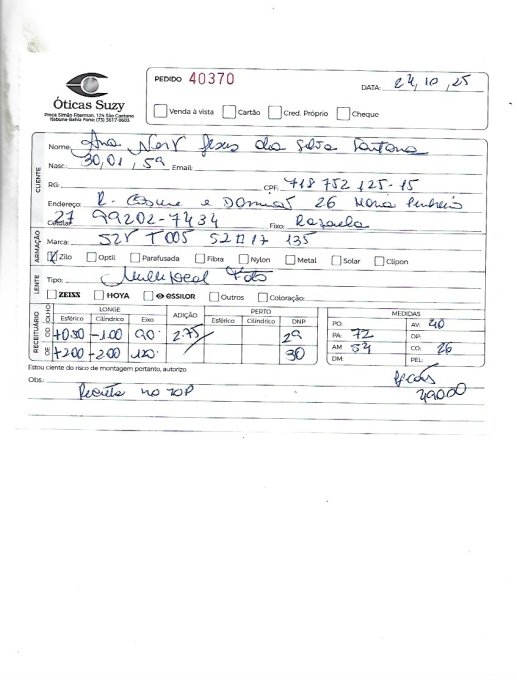 Óticas Suzy
Praça Simão Fiterman, 125 São Caetano
Itabuna-Bahia Fone: (73) 3617-0603
PEDIDO 40370
DATA: 24,10,25
Venda à vista Cartão Cred. Próprio Cheque
CLIENTE
Nome: Ana Jesus da Silva Santana
Nasc.: 30,01,59 Email:
RG: CPF: 718 752 125-15
Endereço: R. e 26 Maria Pinheiro
Celular: 27 99202-7434 Fixo:
ARMAÇÃO
Marca: SZY T005 52 17 135
Zilo Optil Parafusada Fibra Nylon Metal Solar Clipon
LENTE
Tipo: Multifocal Foto
ZEISS HOYA essilor Outros Coloração:
RECEITUÁRIO
OLHO LONGE ADIÇÃO PERTO MEDIDAS
Esférico Cilíndrico Eixo Esférico Cilíndrico DNP
OD +0.50 -1.00 90° 2.75 29
OE +2.00 -2.00 120° 30
PO: AV: 40
PA: 72 DP:
AM: 54 CO: 26
DM: PEL:
Estou cliente do risco de montagem portanto, autorizo
Obs: Receita no zap
490.00